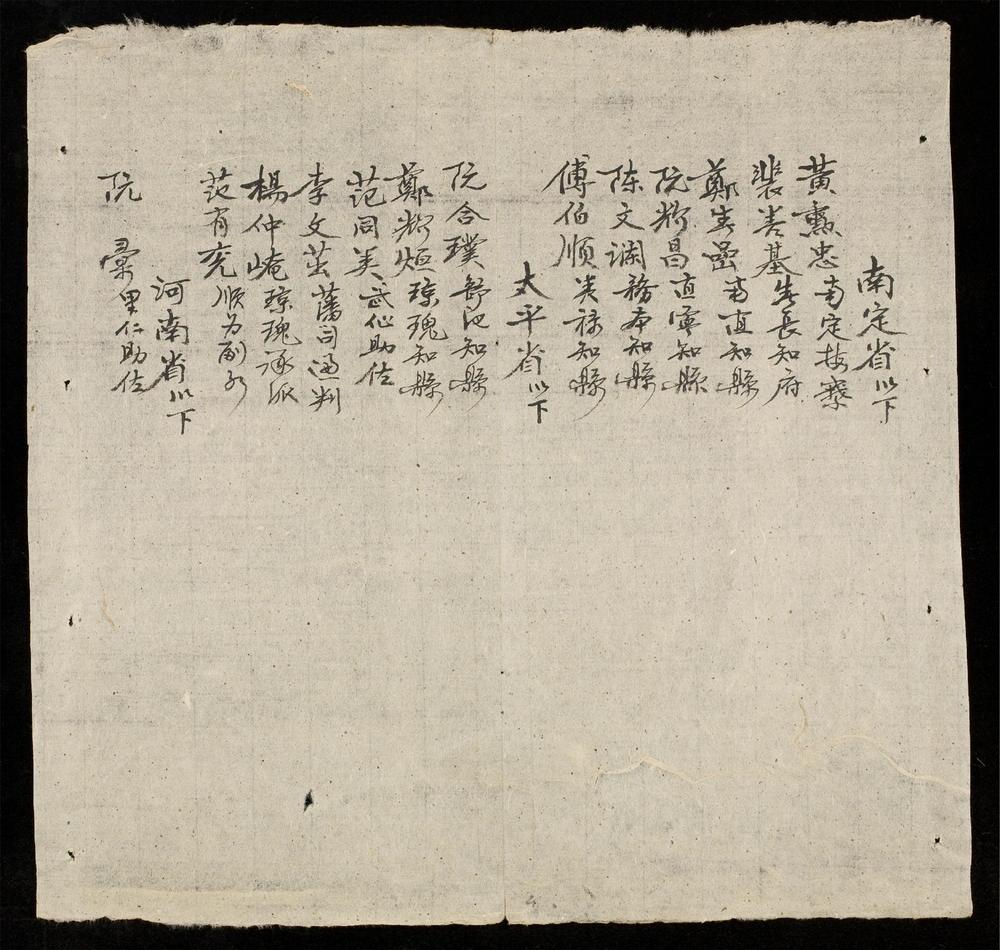 南定省以下
黃勳忠南定按察
裴善基生長知府
鄭春 直知縣
阮輝昌直寧知縣
陈文澜務本知縣
傅伯順美祿知縣
太平省以下
阮合璞舒池知縣
鄭輝烜瓊瑰知縣
范同美武仙助佐
李文茁藩司通判
楊仲崦瓊瑰
范有充順为副
河南省以下
阮彙里仁助佐